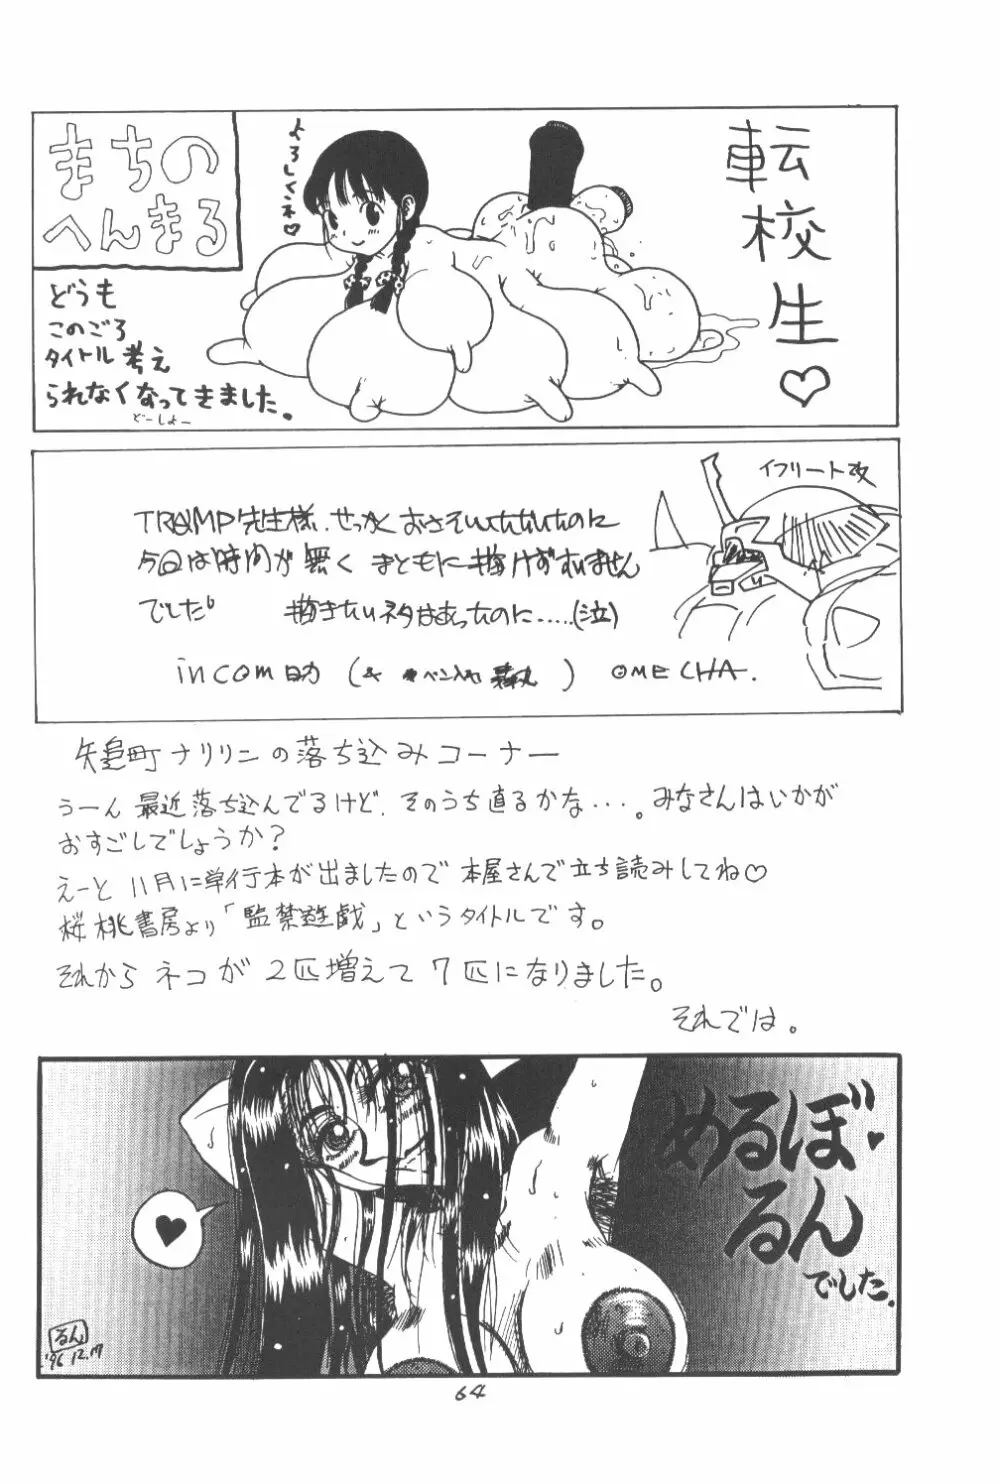 まちの
へんまる
よろしくネ♡
転校生♡
どうも
このごろ
タイトル考え
られなくなってきました。
どーしよー
イフリート改
TRAMP先生様、せっかくおさそいいただいたのに
今回は時間が無く まともに描けずすいません
でした。 描きたいネタはあったのに……(泣)
incom助 (& ) OMECHA.
矢島町ナリリンの落ち込みコーナー
うーん 最近落ち込んでるけど、そのうち直るかな…。みなさんはいかが
おすごしでしょうか?
えーと 11月に単行本が出ましたので 本屋さんで立ち読みしてね♡
桜桃書房より「監禁遊戯」というタイトルです。
それから ネコが 2匹増えて 7匹になりました。
それでは。
めるぼ♥
るん
でした。
♥
るん
'96 12.17
64